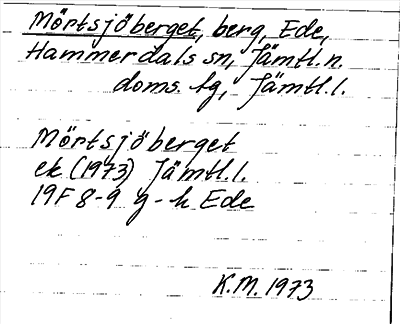 Mörtsjöberget, berg, Ede,
Hammerdals sn, Jämtl. n.
doms. tg, Jämtl. l.
Mörtsjöberget
ek (1973) Jämtl. l.
19F 8-9 g-h Ede
K.M. 1973